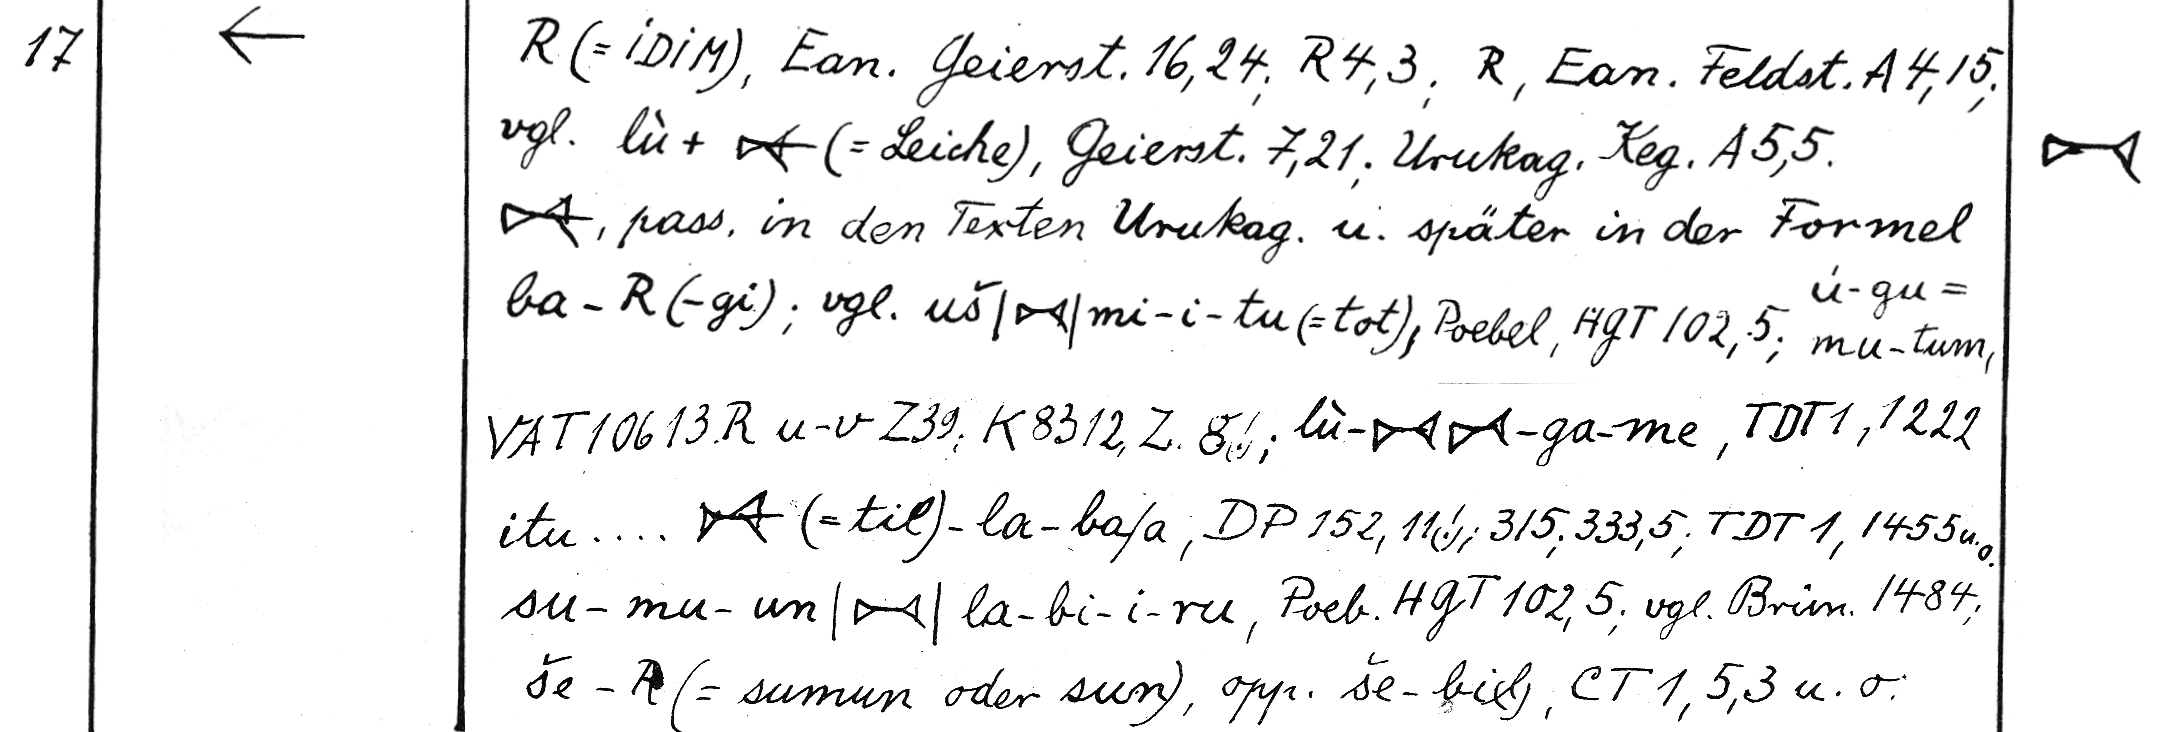 17 ← R (= iDiM), Ean. Geierst. 16,24; R 4,3; R, Ean. Feldst. A 4,15;
vgl. lù + (= Leiche), Geierst. 7,21; Urukag. Keg. A 5,5.
, pass. in den Texten Urukag. u. später in der Formel
ba - R (-gi); vgl. uš | | mi-i-tu (= tot), Poebel, HGT 102,5; ú-gu =
mu-tum,
VAT 10613. R u-v Z 39; K 8312, Z. 8; lù- -ga-me, TDT 1, 1222
itu .... (= til) - la - ba/a, DP 152, 11; 315; 333,5; TDT 1, 1455 u. o.
su-mu-un | | la-bi-i-ru, Poeb. HGT 102,5; vgl. Brün. 1484;
še - R (= sumun oder sun), opp. še- , CT 1, 5,3 u. o.